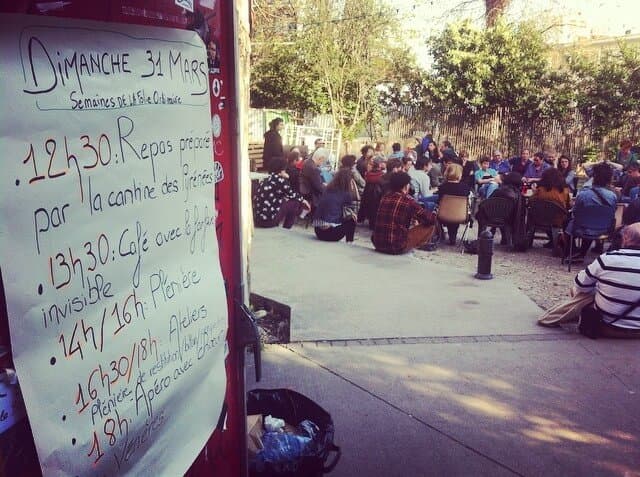 DIMANCHE 31 MARS
SEMAINES DE LA FOLIE ORDINAIRE
• 12h30: Repas préparé
par la cantine des Pyrénées
• 13h30: Café avec la fanfare
invisible
• 14h/16h: Plénière
• 16h30/18h: Ateliers
Plénière de restitution
• 18h: Apéro avec
Vénères